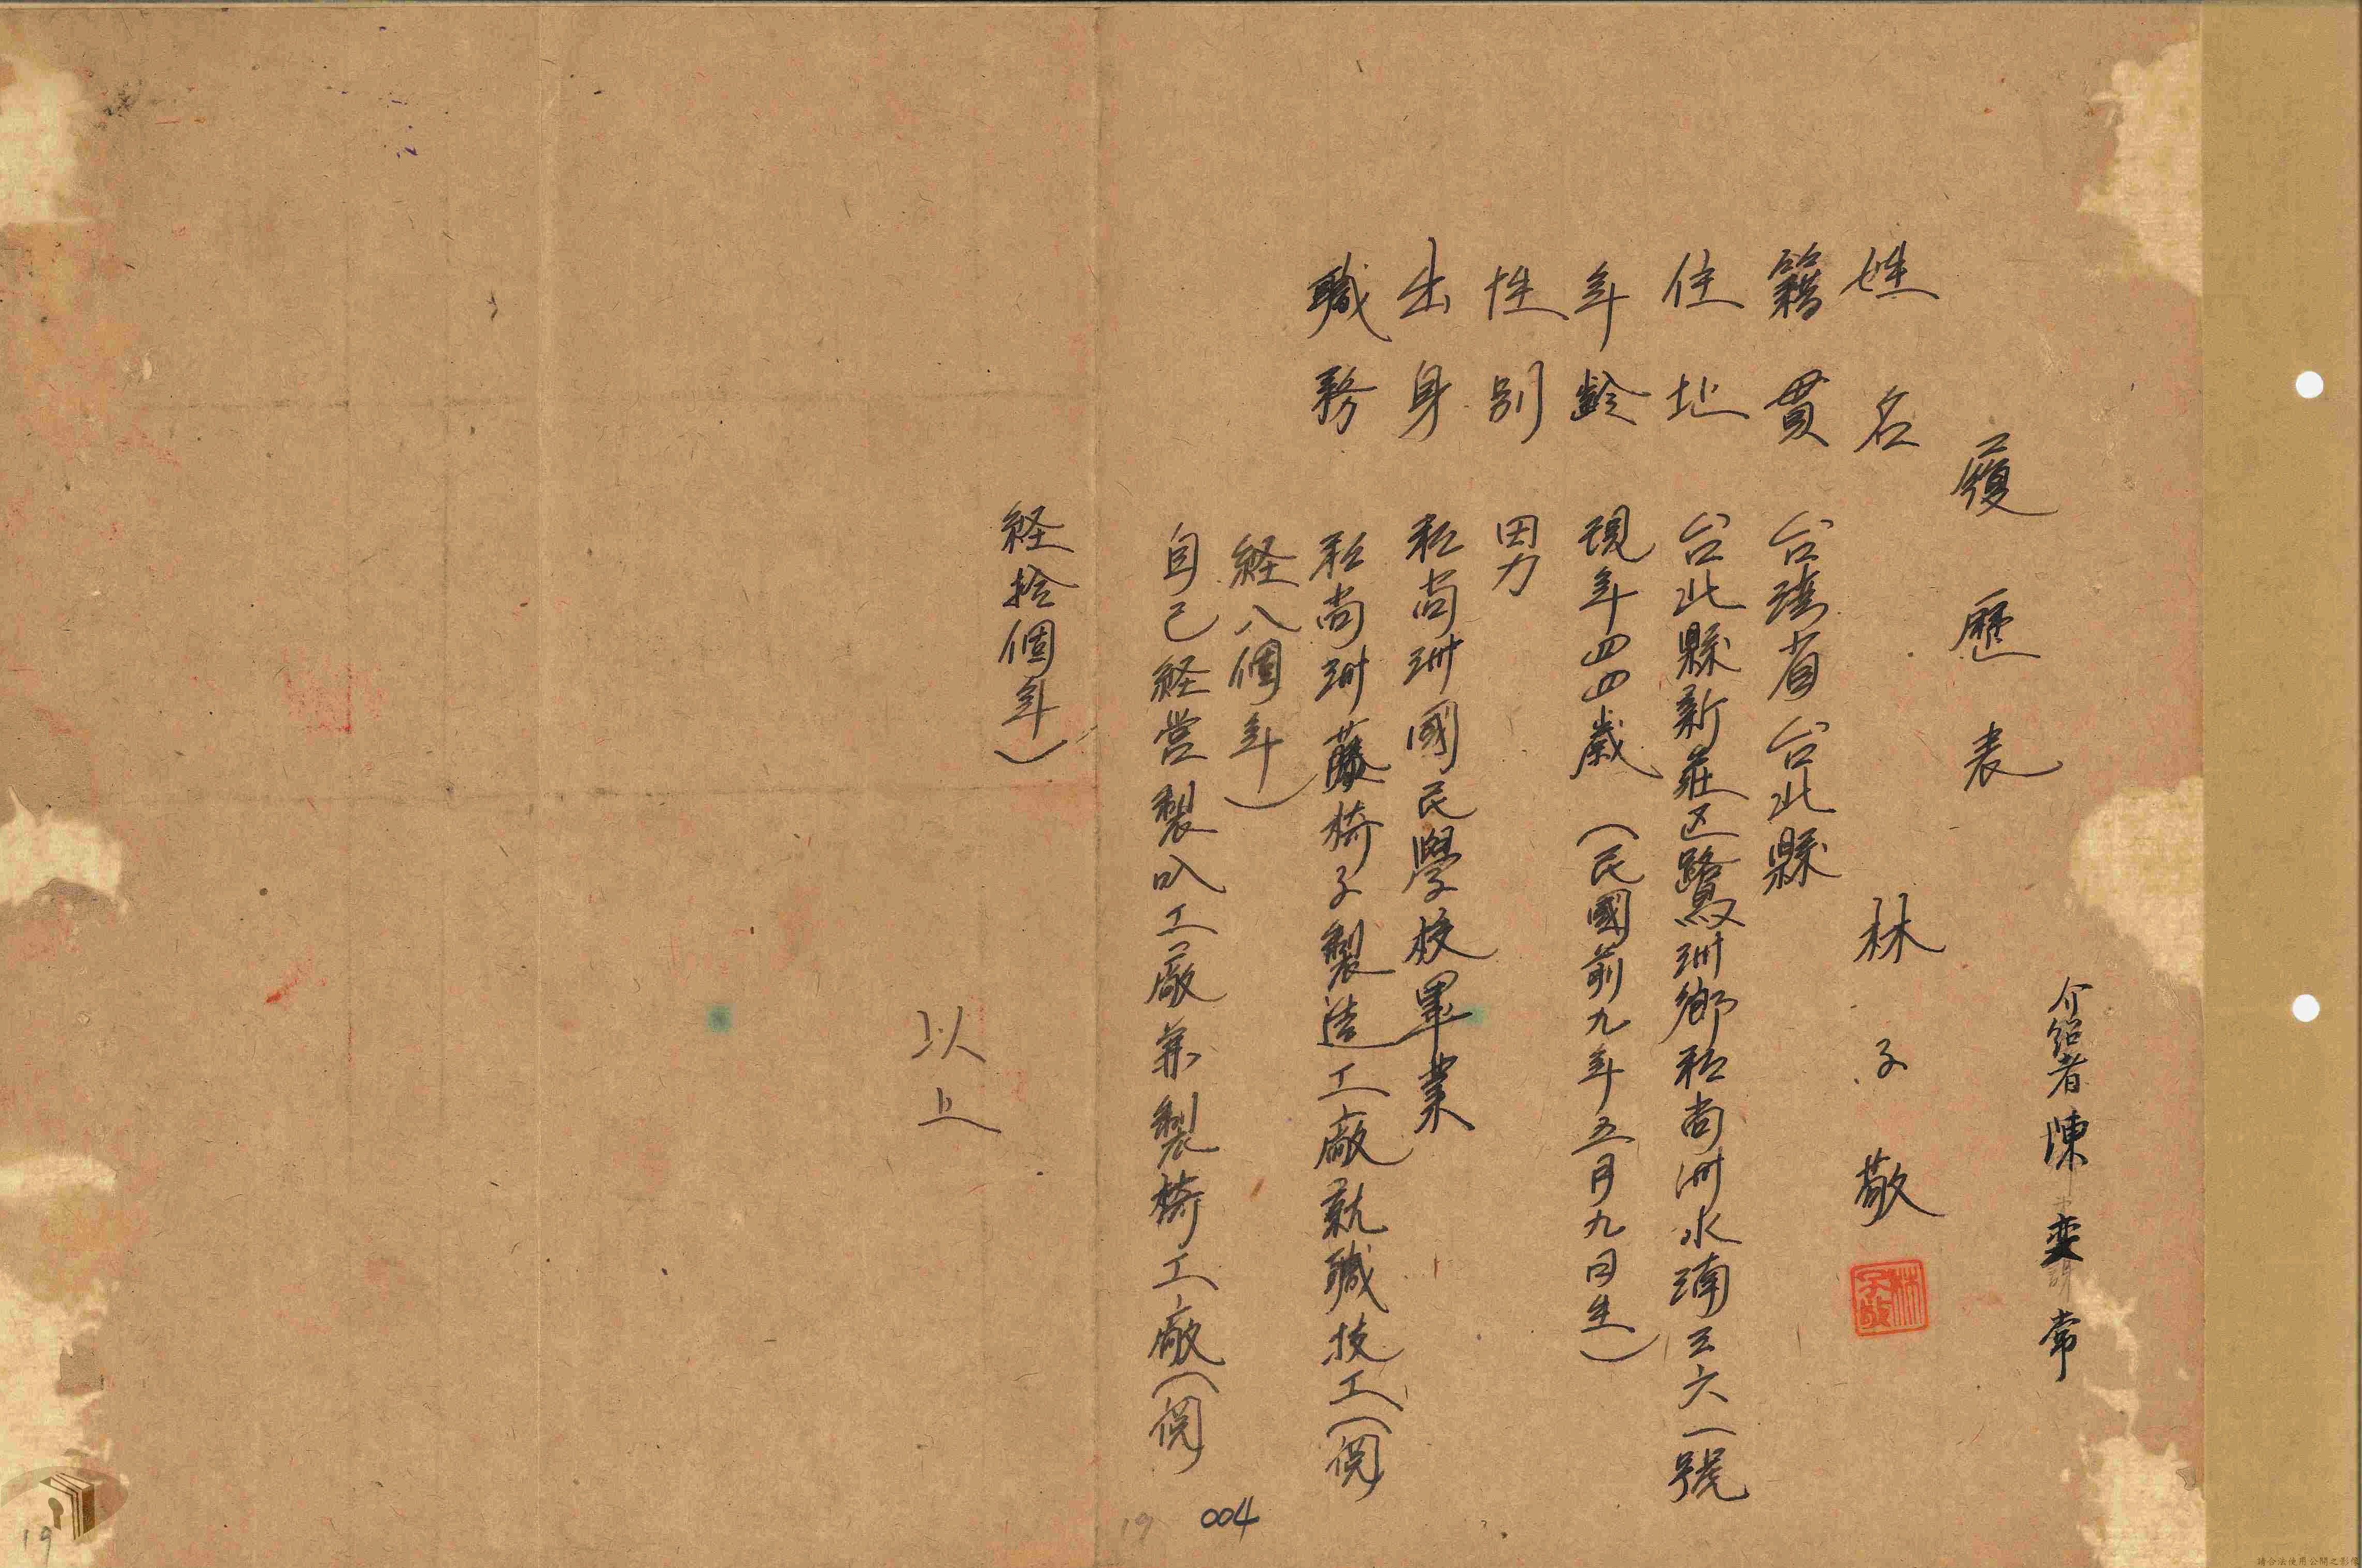 介紹者 陳奕常
履歷表
姓名 林子敬
林子敬
籍貫 台湾省台北縣
住址 台北縣新莊区鷺洲鄉和尚洲水湳三六一號
年齡 現年四四歲（民國前九年五月九日生）
性別 男
出身 和尚洲國民學校畢業
職務 和尚洲藤椅子製造工廠就職技工（
経八個年）
自己経営製叺工廠兼製椅工廠（
経拾個年）
以上
19 004
19
請合法使用公開之影像